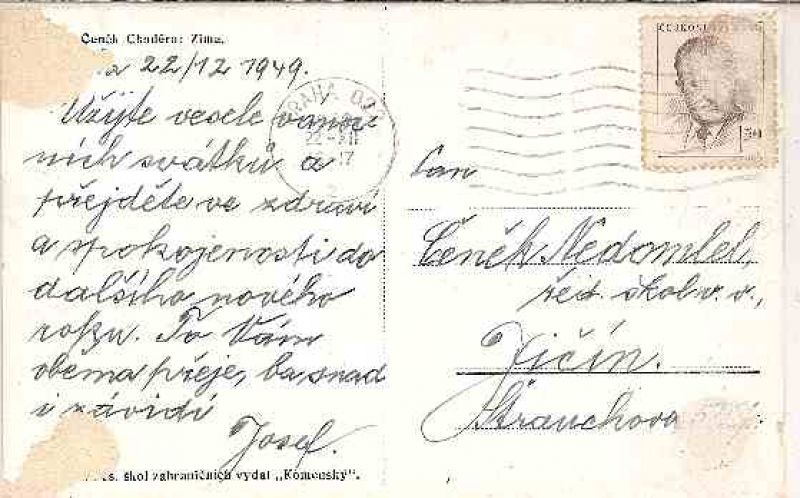 Čeněk Chaděra: Zima.
a 22/12 1949.
Užijte vesele vánoč
ních svátků a
přejděte ve zdraví
a spokojenosti do
dalšího nového
roku. To Vám
oběma přeje, ba snad
i závidí
Josef.
čs. škol zahraničních vydal „Komenský“.
PRAHA
22.XII
17
2
ČESKOSLOVENSKO
1.50
Pan
Čeněk Nedomlel,
řed. škol v. v.,
Jičín.
Štrauchova